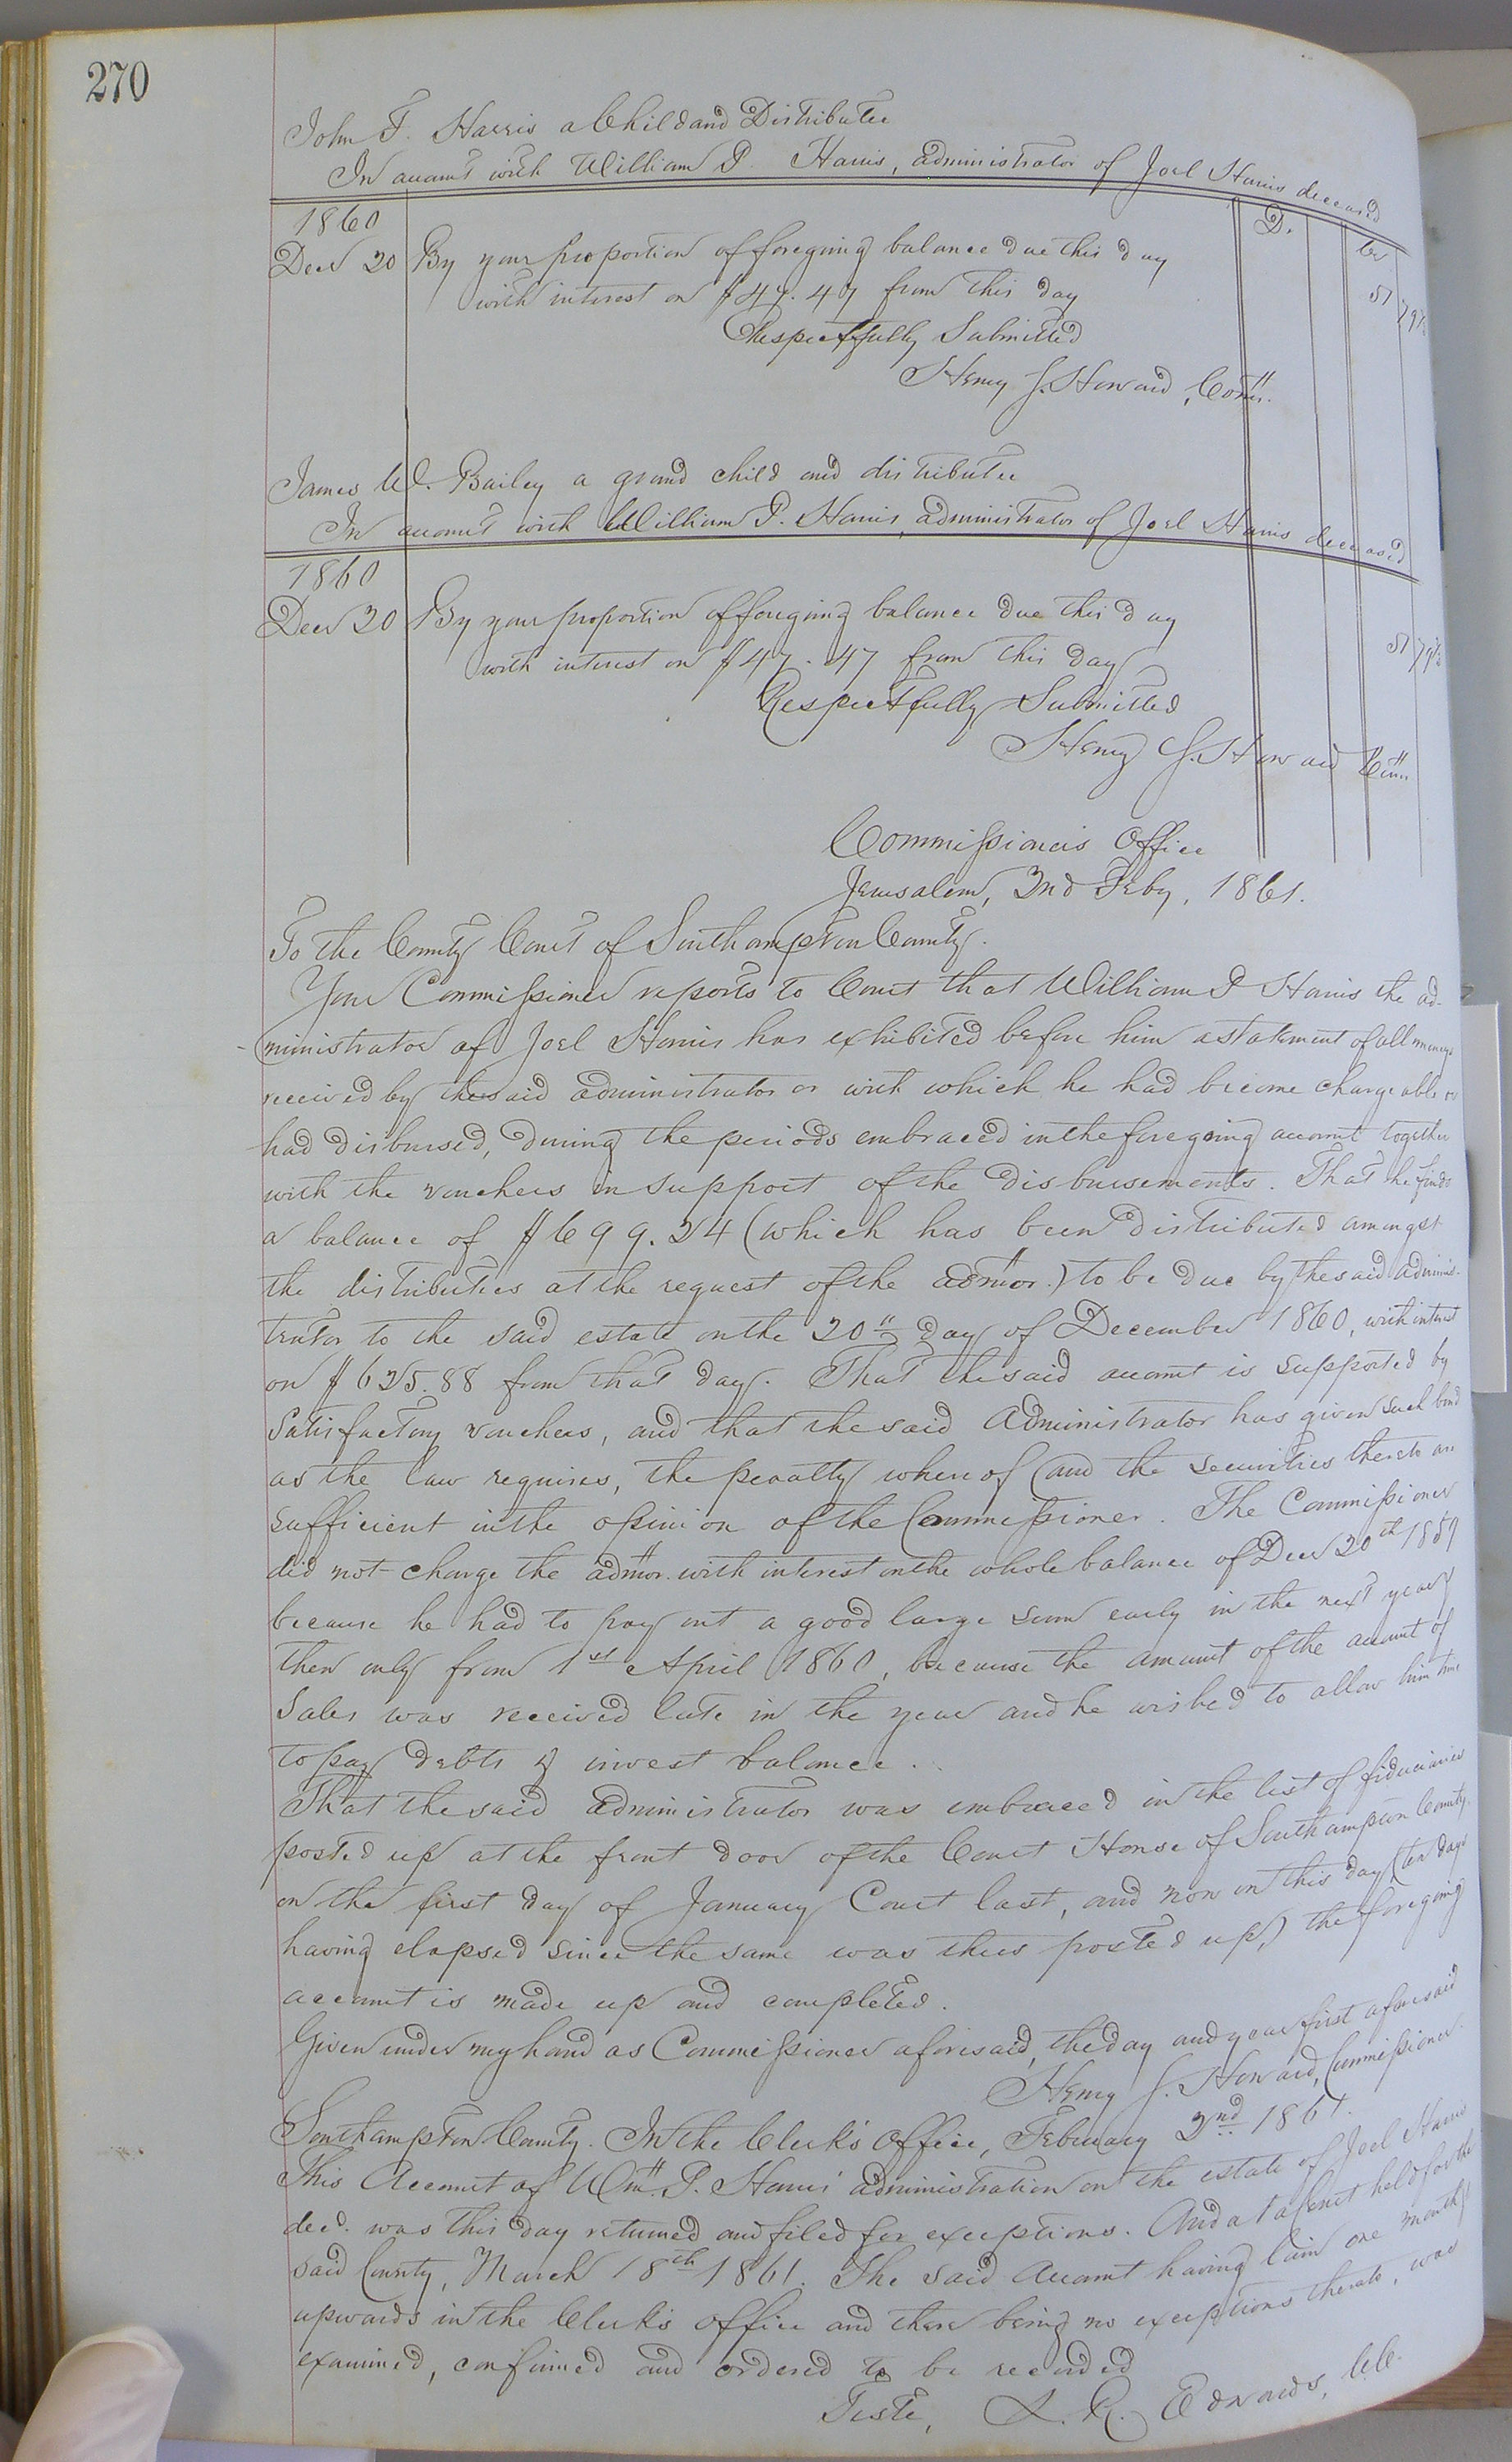 270
John T. Harris a Child and Distributee
In account with William P. Harris, administrator of Joel Harris deceased
1860 D. Cr
Decr 20 By your proportion of foregoing balance due this day
with interest on $47.47 from this day 51 79½
Respectfully Submitted
Henry J. Howard, Comr.
James W. Bailey a grand child and distributee
In account with William P. Harris, administrator of Joel Harris deceased
1860
Decr 20 By your proportion of foregoing balance due this day
with interest on $47.47 from this day 51 79½
Respectfully Submitted
Henry J. Howard Comr.
Commissioners Office
Jerusalem, 2nd Feby, 1861.
To the County Court of Southampton County.
Your Commissioner reports to Court that William P Harris the ad-
ministrator of Joel Harris has exhibited before him a statement of all moneys
received by the said administrator or with which he had become chargeable or
had disbursed, during the periods embraced in the foregoing account together
with the vouchers in support of the disbursements. That he finds
a balance of $699.24 (which has been distributed amongst
the distributees at the request of the admor.) to be due by the said adminis-
trator to the said estate on the 20th day of December 1860, with interest
on $625.88 from that day. That the said account is supported by
Satisfactory vouchers, and that the said Administrator has given such bond
as the law requires, the penalty whereof (and the securities thereto are
sufficient in the opinion of the Commissioner. The Commissioner
did not charge the admor. with interest on the whole balance of Decr 20th 1859
because he had to pay out a good large sum early in the next year
then only from 1st April 1860, because the amount of the account of
Sales was received late in the year and he wished to allow him time
to pay debts & invest balance.
That the said administrator was embraced in the list of fiduciaries
posted up at the front door of the Court House of Southampton County.
on the first day of January Court last, and now on this day (ten days
having elapsed since the same was thus posted up,) the foregoing
account is made up and completed.
Given under my hand as Commissioner aforesaid, the day and year first aforesaid
Henry J. Howard, Commissioner.
Southampton County. In the Clerk's Office, February 2nd 1861.
This Account of Wm. P. Harris' administration on the estate of Joel Harris
decd. was this day returned and filed for exceptions. And at a Court held for the
said County, March 18th 1861. The said Account having lain one month
upwards in the Clerk's office and there being no exceptions thereto, was
examined, confirmed and ordered to be recorded
Teste, L. R. Edwards, CC.